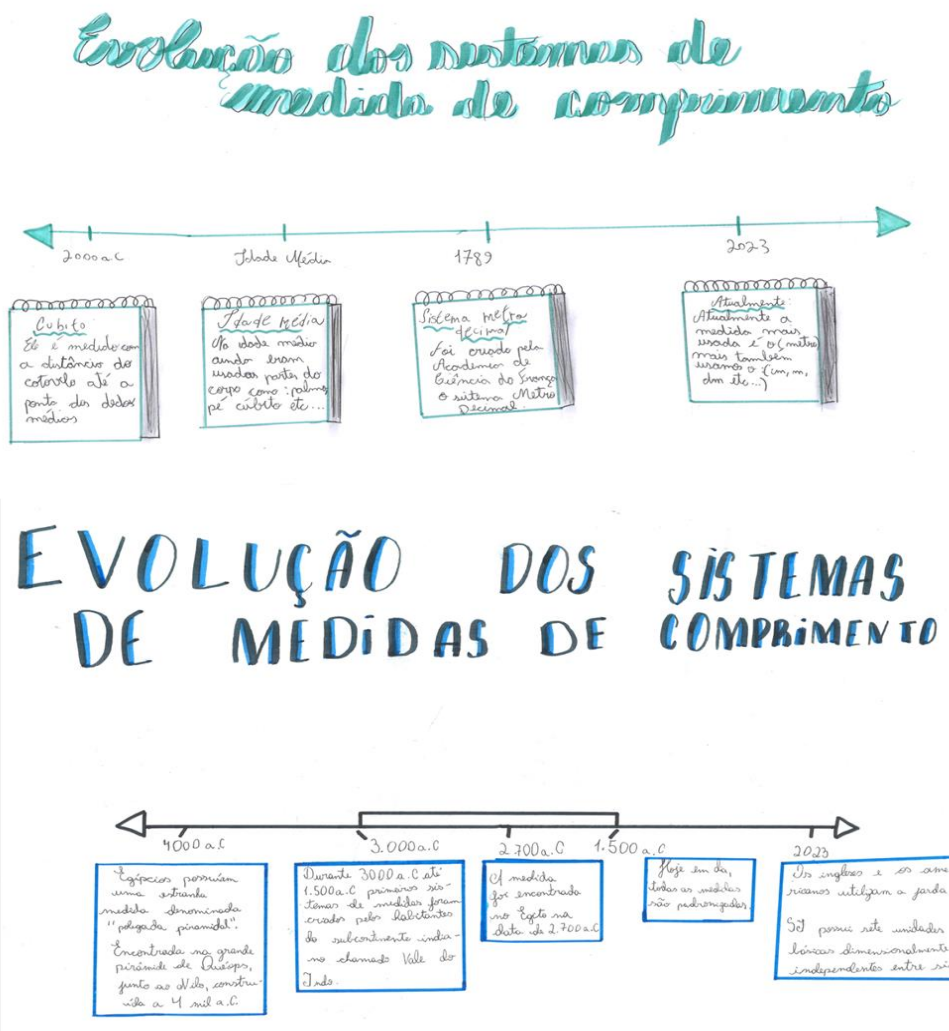 Evolução dos sistemas de
medida de comprimento
2000 a.C
Idade Média
1789
2023
Cubito:
Ele é medido com
a distância do
cotovelo até a
ponta dos dedos
médios
Idade média
No dade médio
ainda eram
usadas partes do
corpo como: palmo,
pé cúbito etc...
Sistema metro
decimal
Foi criado pela
Academia de
Ciência da França
o sitema Metro
Decimal.
Atualmente:
Atualmente a
medida mais
usada é o (metro)
mais também
usamos o (cm, m,
dm etc...)
EVOLUÇÃO DOS SISTEMAS
DE MEDIDAS DE COMPRIMENTO
4000 a.C
3.000 a.C
2.700 a.C
1.500 a.C
2023
Egípcios possuíam
uma estranha
medida denominada
"polegada piramidal".
Encontrada na grande
pirâmide de Quéops,
junto ao Nilo, constru-
ída a 4 mil a.C.
Durante 3000 a.C até
1.500 a.C primeiros sis-
temas de medidas foram
criados pelos habitantes
do subcontinente india-
no chamado Vale do
Indo.
A medida
foi encontrada
no Egito na
data de 2.700 a.C
Hoje em dia,
todas as medidas
são padronizadas.
Os ingleses e os ame
ricanos utilizam a jarda
SI possui sete unidades
básicas dimensionalmente
independentes entre si